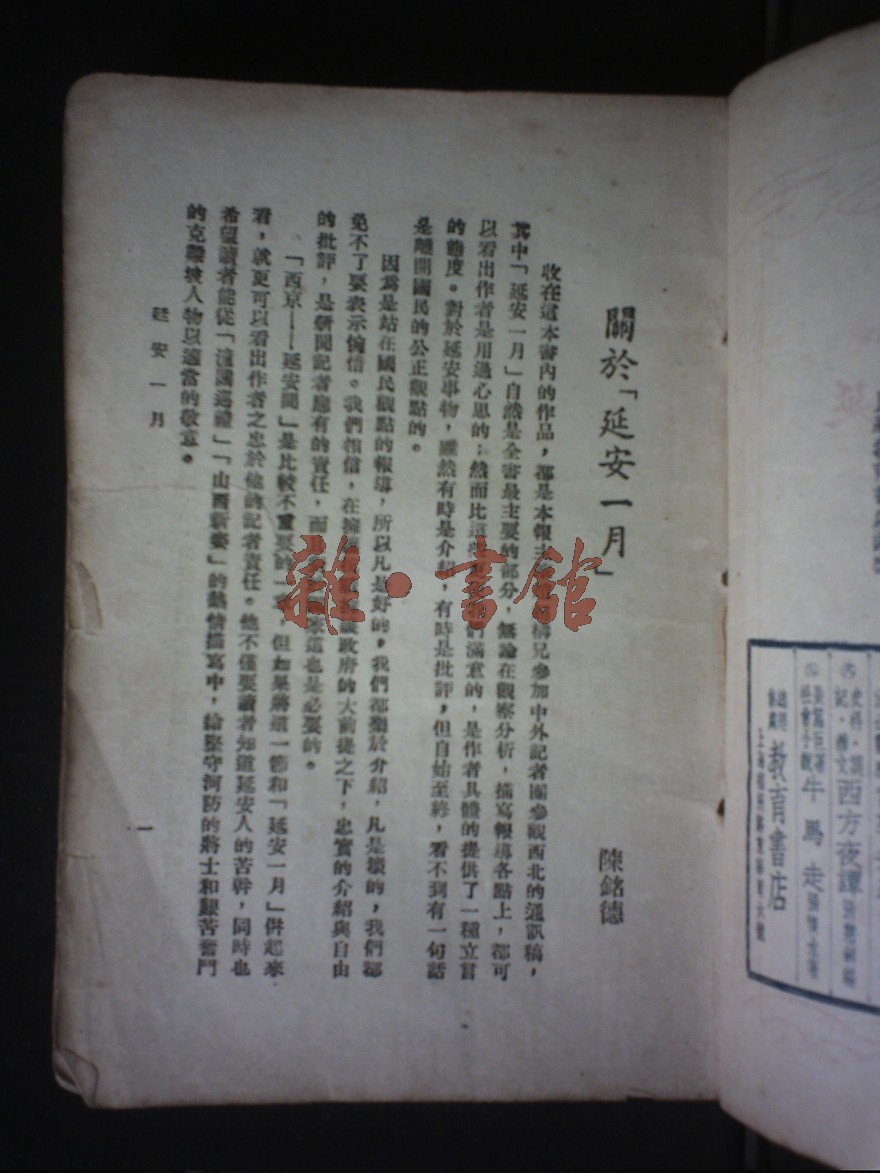 關於「延安一月」
陳銘德
收在這本書內的作品，都是本報主 稱兄參加中外記者團參觀西北的通訊稿，
其中「延安一月」自然是全書最主要的部分，無論在觀察分析，描寫報導各點上，都可
以看出作者是用過心思的；然而比這 們滿意的，是作者具體的提供了一種立言
的態度。對於延安事物，雖然有時是介紹，有時是批評，但自始至終，看不到有一句話
是離開國民的公正觀點的。
因為是站在國民觀點的報導，所以凡是好的，我們都樂於介紹，凡是壞的，我們都
免不了要表示惋惜。我們相信，在擁 政府的大前提之下，忠實的介紹與自由
的批評，是新聞記者應有的責任，而 這也是必要的。
「西京——延安間」是比較不重要的一 ，但如果將這一節和「延安一月」併起來
看，就更可以看出作者之忠於他的記者責任。他不僅要讀者知道延安人的苦幹，同時也
希望讀者能從「 國巡禮」「山西新姿」的熱情描寫中，給堅守河防的將士和艱苦奮鬥
的克難坡人物以適當的敬意。
延安一月
一
雜·書館
延
西方夜譚
牛馬走
社會小說
教育書店